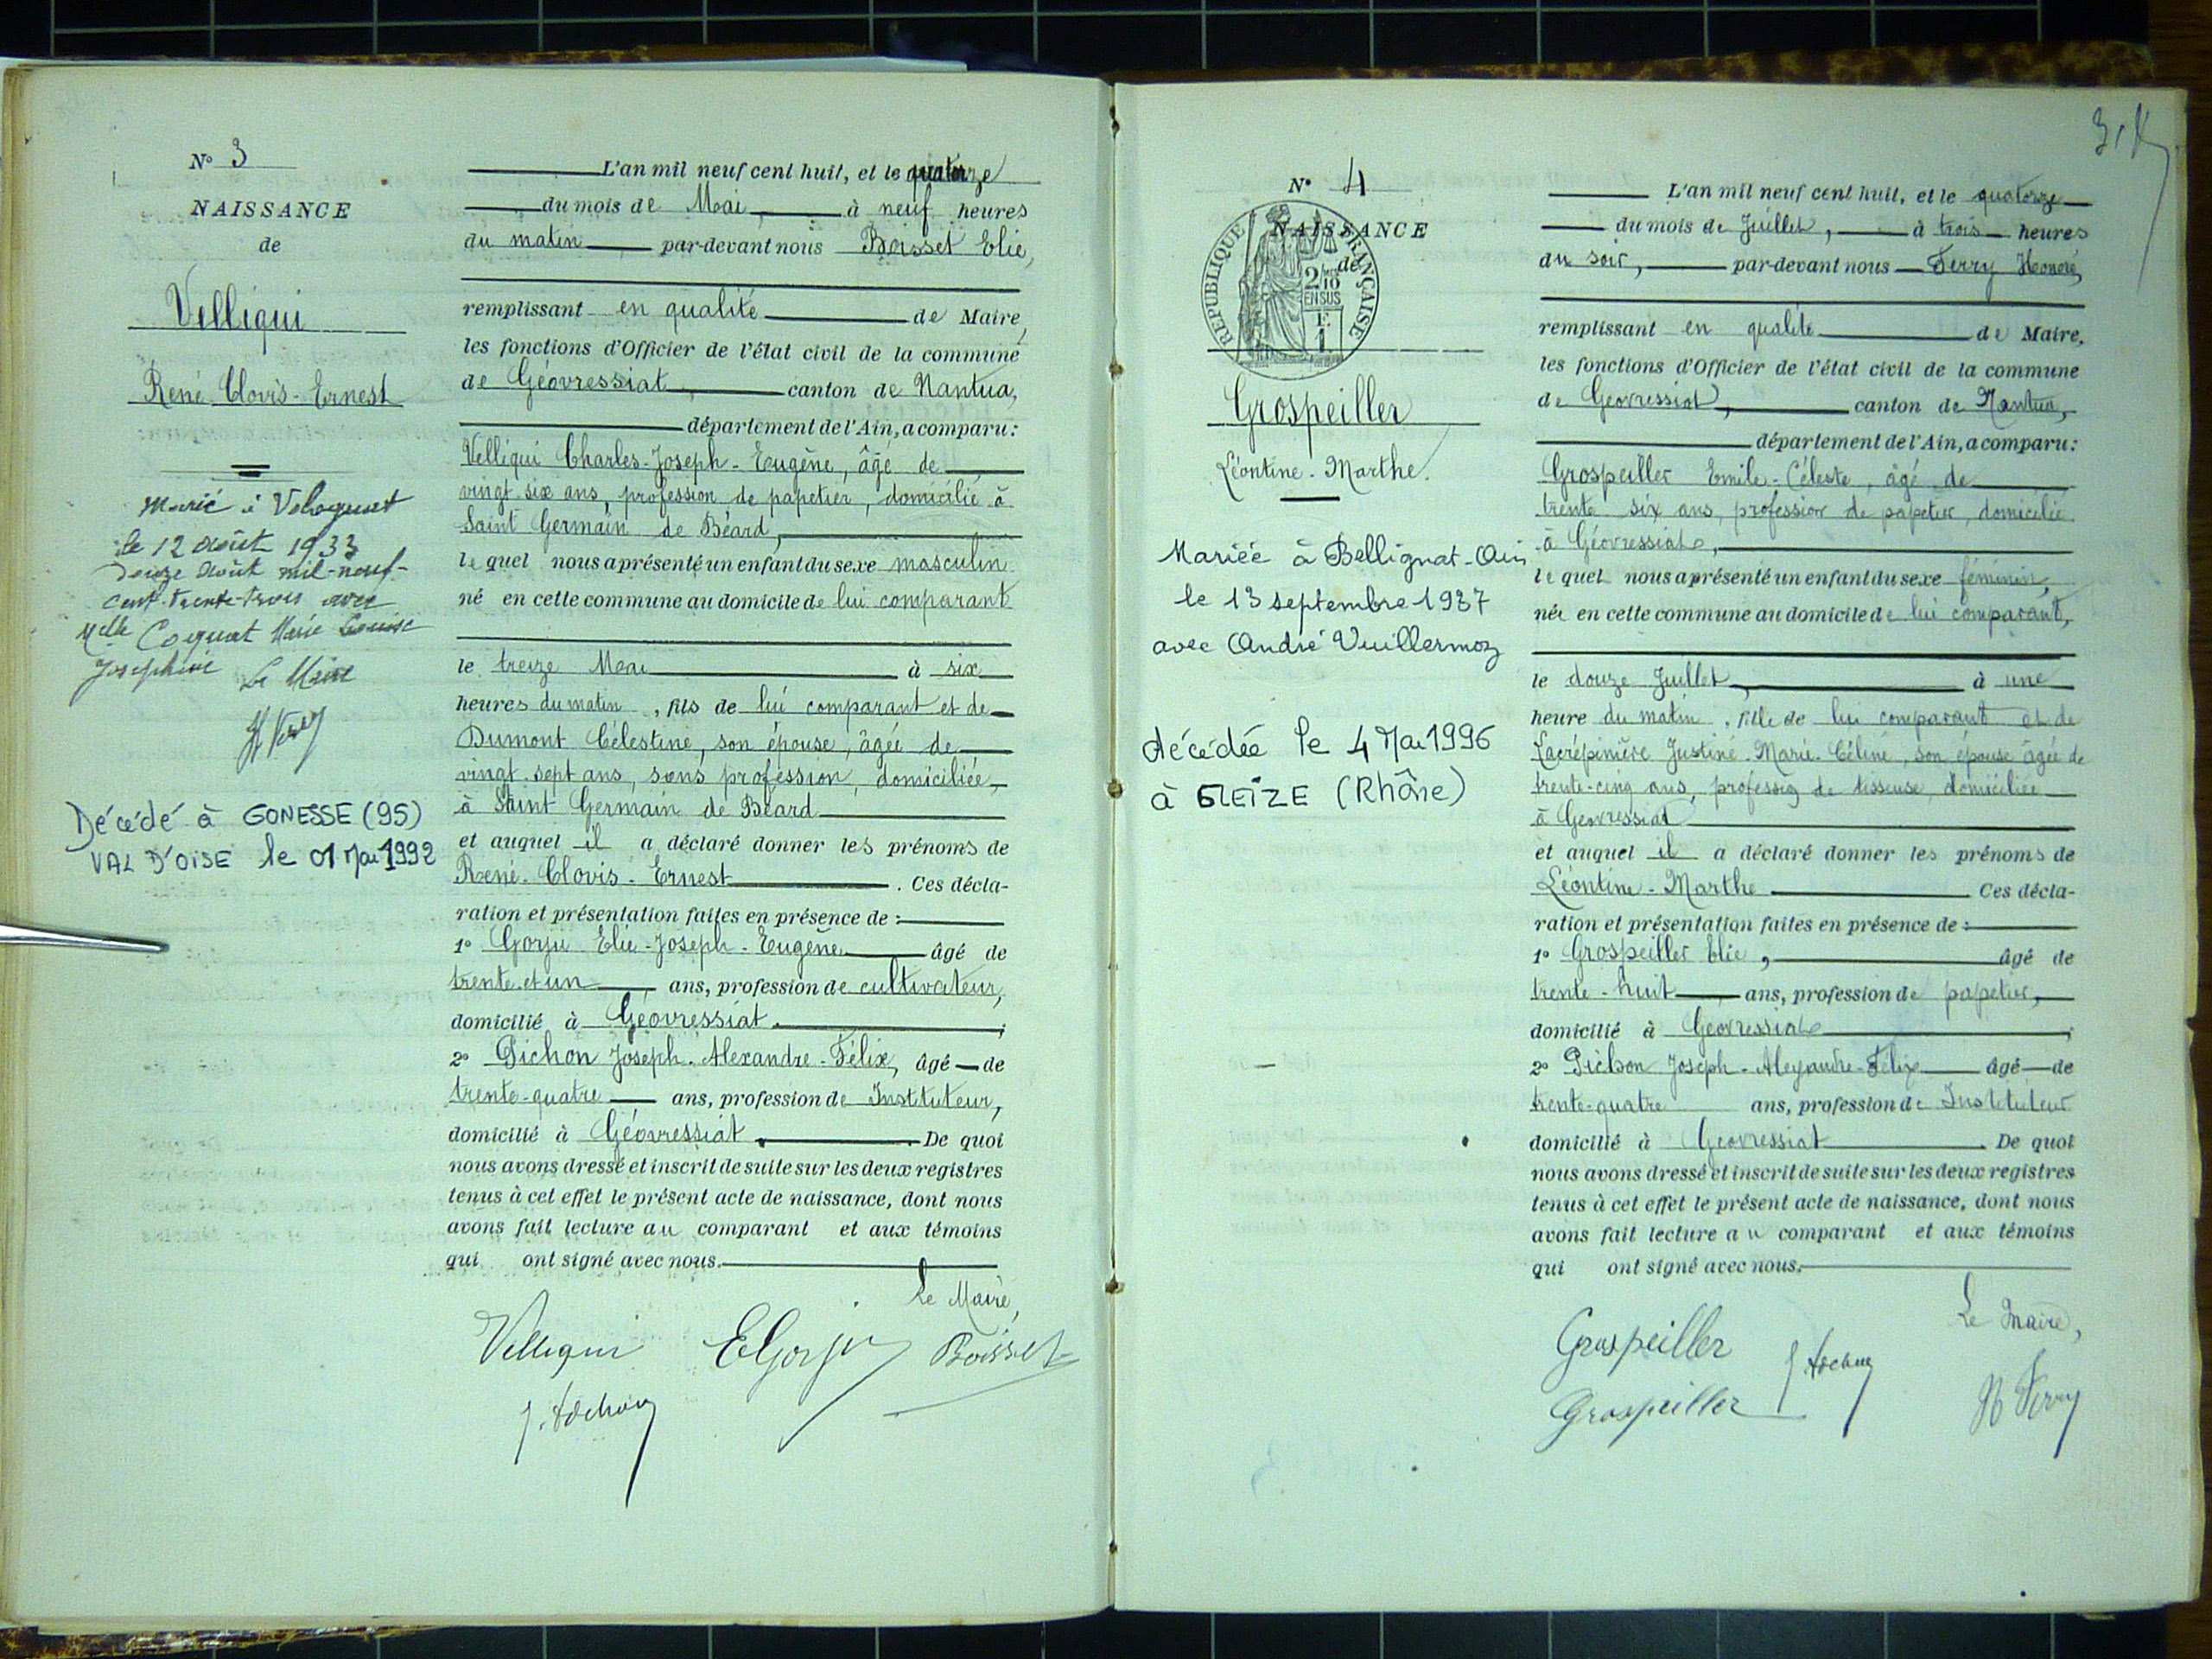 N° 3
NAISSANCE
de
Velliqui
René Clovis-Ernest
Marié à
le 12 août 1933
douze août mil-neuf-
cent-trente-trois avec
Melle Coquat Marie Louise
Joséphine Le Maire
H Ferry
Décédé à GONESSE (95)
VAL D'OISE le 01 Mai 1992
L'an mil neuf cent huit, et le quatorze
du mois de Mai, à neuf heures
du matin par-devant nous Boisset Elie,
remplissant en qualité de Maire,
les fonctions d'Officier de l'état civil de la commune
de Géovressiat, canton de Nantua,
département de l'Ain, a comparu :
Velliqui Charles-Joseph-Eugène, âgé de
vingt-six ans, profession de papetier, domicilié à
Saint Germain de Béard,
le quel nous a présenté un enfant du sexe masculin
né en cette commune au domicile de lui comparant
le treize Mai à six
heures du matin, fils de lui comparant et de
Dumont Célestine, son épouse, âgée de
vingt-sept ans, sans profession, domiciliée,
à Saint Germain de Béard
et auquel il a déclaré donner les prénoms de
René-Clovis-Ernest. Ces décla-
ration et présentation faites en présence de :
1° Gorju Elie-Joseph-Eugène âgé de
trente et un ans, profession de cultivateur,
domicilié à Géovressiat ;
2° Pichon Joseph-Alexandre-Félix, âgé de
trente-quatre ans, profession de Instituteur,
domicilié à Géovressiat. De quoi
nous avons dressé et inscrit de suite sur les deux registres
tenus à cet effet le présent acte de naissance, dont nous
avons fait lecture au comparant et aux témoins
qui ont signé avec nous.
Le Maire,
Velliqui E Gorju Boisset
J. Pichon
N° 4
NAISSANCE
de
REPUBLIQUE FRANÇAISE
2/10
EN SUS
F.
1
Grospeiller
Léontine-Marthe.
Mariée à Bellignat-Ain
le 13 septembre 1937
avec André Vuillermoz
décédée le 4 Mai 1996
à GLEIZE (Rhône)
L'an mil neuf cent huit, et le quatorze
du mois de Juillet, à trois heures
du soir, par-devant nous Ferry Honoré,
remplissant en qualité de Maire,
les fonctions d'Officier de l'état civil de la commune
de Géovressiat, canton de Nantua,
département de l'Ain, a comparu :
Grospeiller Emile-Céleste, âgé de
trente six ans, profession de papetier, domicilié
à Géovressiat,
le quel nous a présenté un enfant du sexe féminin,
née en cette commune au domicile de lui comparant,
le douze Juillet, à une
heure du matin, fille de lui comparant et de
Lacrépinière Justine-Marie-Céline, son épouse âgée de
trente-cinq ans, profession de tisseuse, domiciliée
à Géovressiat
et auquel il a déclaré donner les prénoms de
Léontine-Marthe Ces décla-
ration et présentation faites en présence de :
1° Grospeiller Elie, âgé de
trente-huit ans, profession de papetier,
domicilié à Géovressiat ;
2° Pichon Joseph-Alexandre-Félix âgé de
trente-quatre ans, profession de Instituteur
domicilié à Géovressiat. De quoi
nous avons dressé et inscrit de suite sur les deux registres
tenus à cet effet le présent acte de naissance, dont nous
avons fait lecture au comparant et aux témoins
qui ont signé avec nous.
Le Maire,
Grospeiller J. Pichon
Grospeiller H Ferry